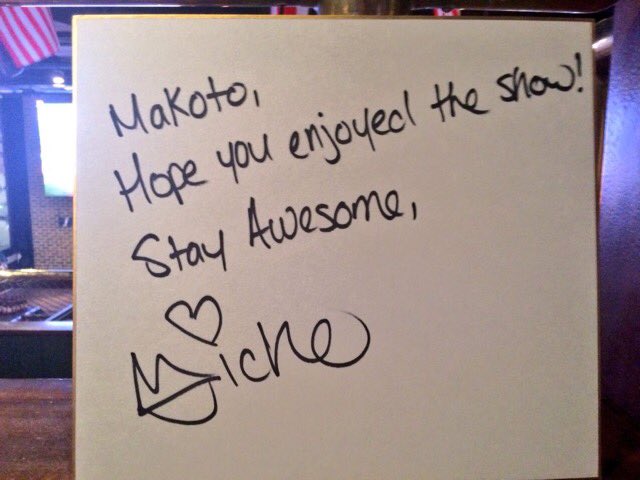 Makoto,
Hope you enjoyed the show!
Stay Awesome,